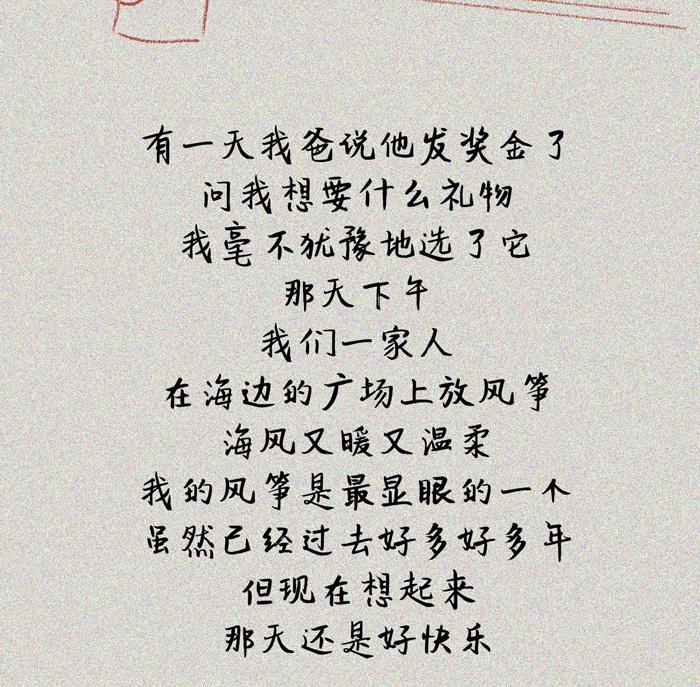 有一天我爸说他发奖金了
问我想要什么礼物
我毫不犹豫地选了它
那天下午
我们一家人
在海边的广场上放风筝
海风又暖又温柔
我的风筝是最显眼的一个
虽然已经过去好多好多年
但现在想起来
那天还是好快乐